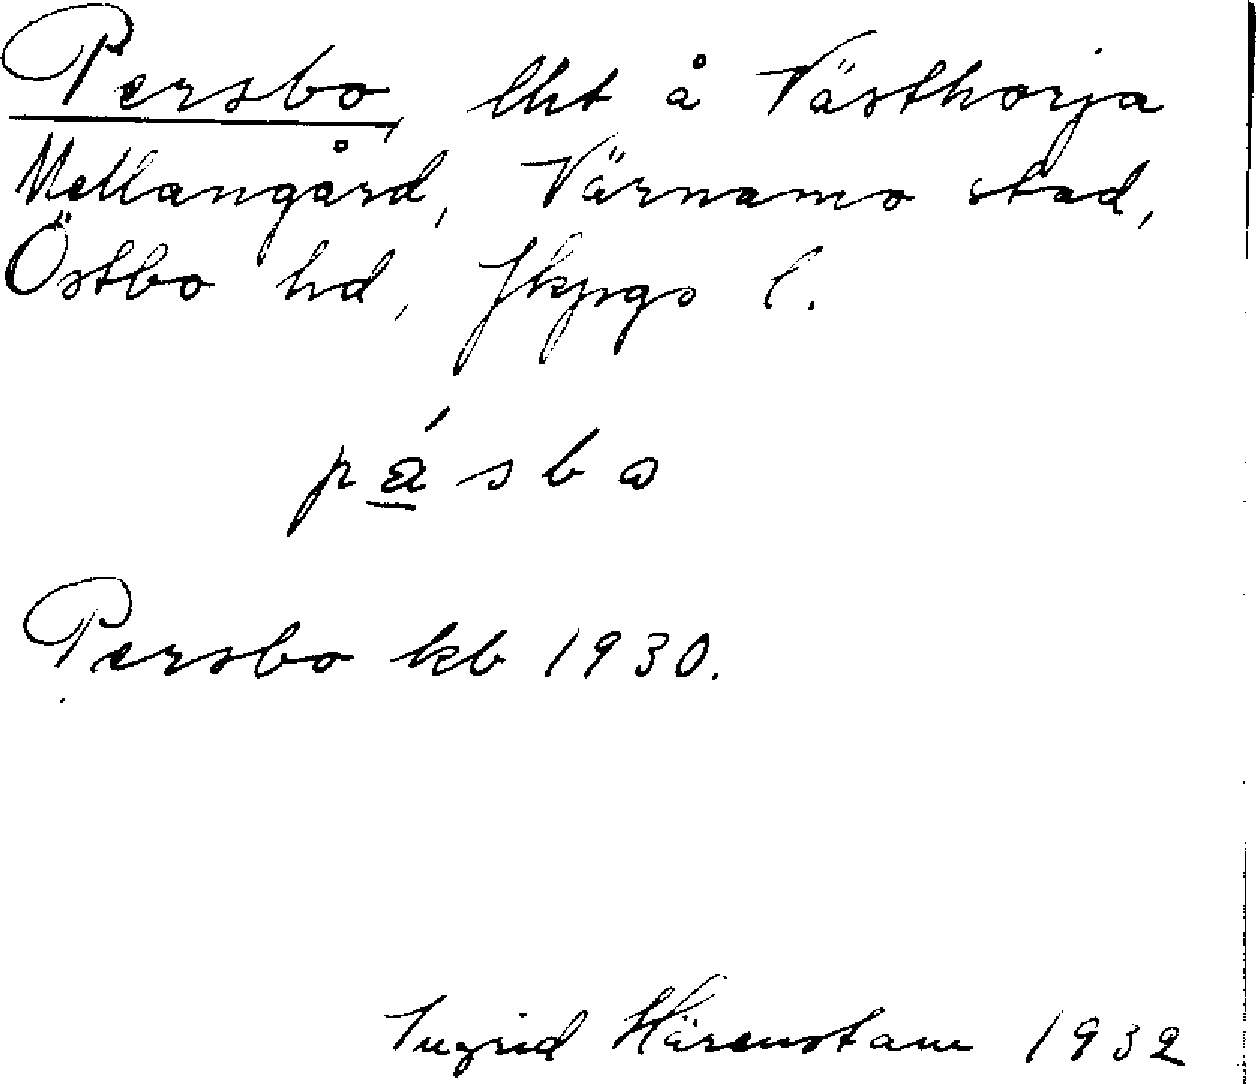 Persbo, lht å Västhorja
Mellangård, Värnamo stad,
Östbo hd, Jkpgs l.
pá̲sbo
Persbo kb 1930.
Ingrid Härenstam 1932